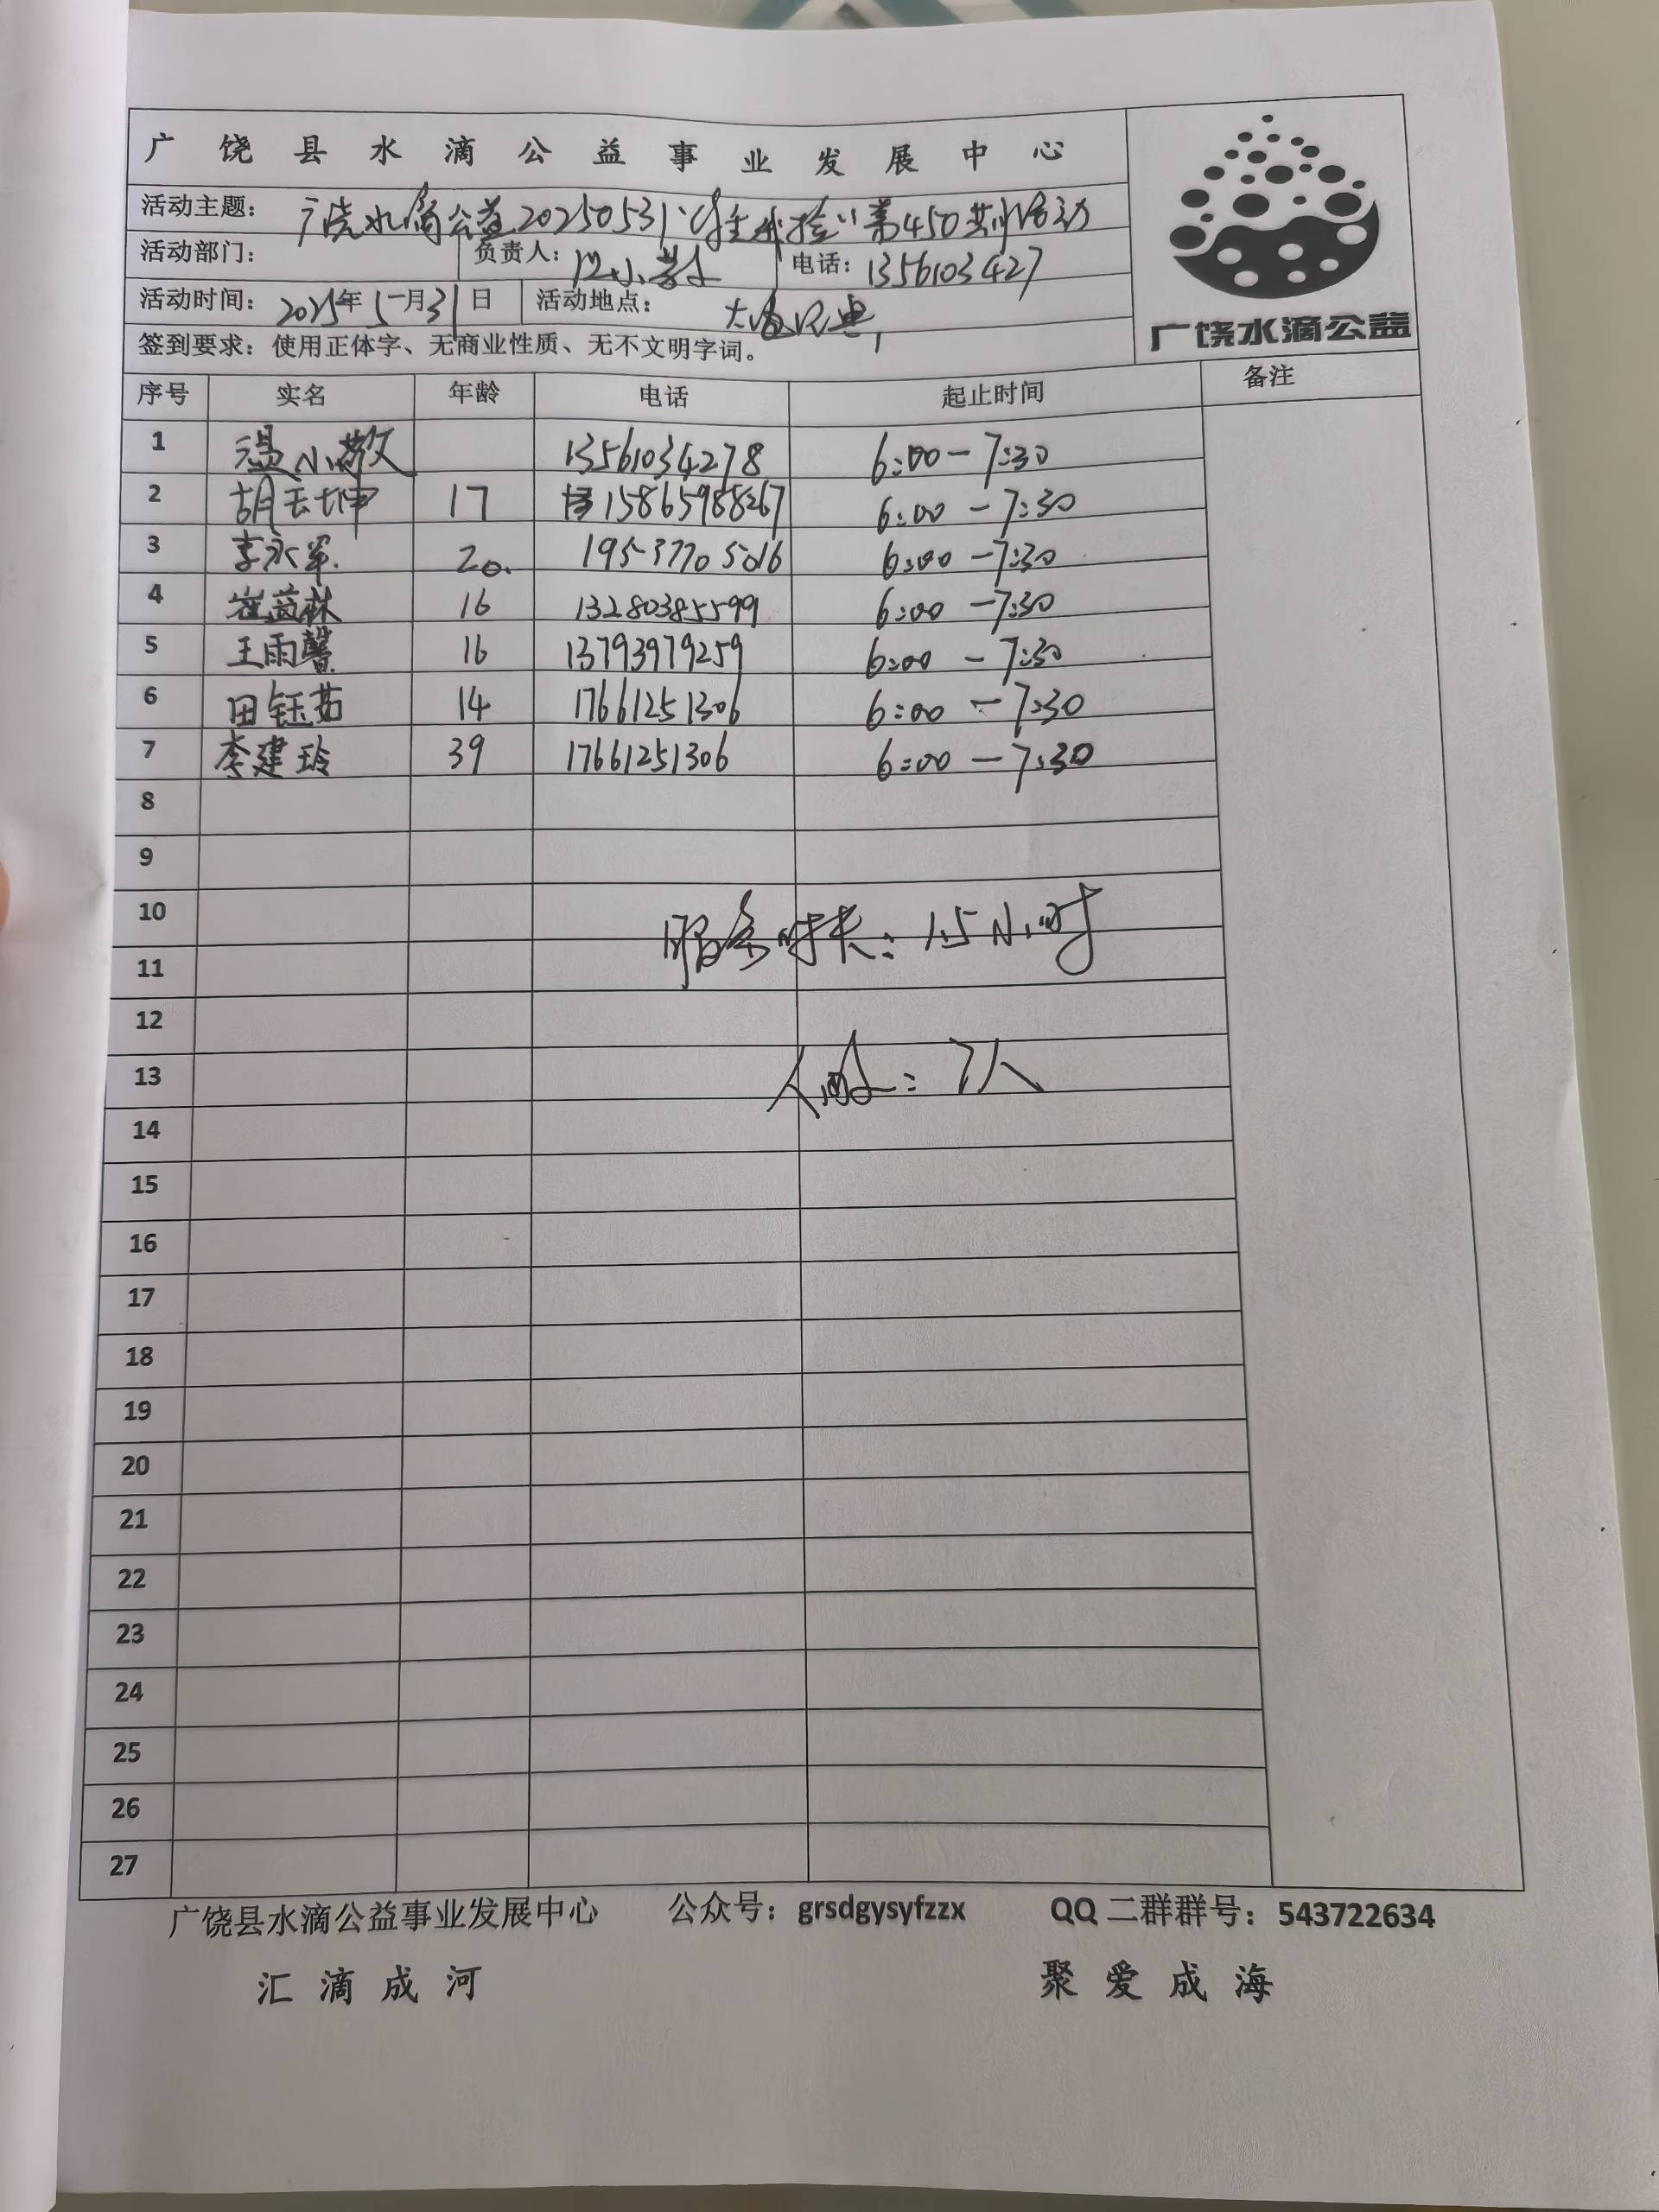 广饶县水滴公益事业发展中心
活动主题： 广饶水滴公益20250531 第450期活动
活动部门： 负责人： 电话：1356103427
活动时间：2025年5月31日 活动地点：
签到要求：使用正体字、无商业性质、无不文明字词。
广饶水滴公益
序号 实名 年龄 电话 起止时间 备注
1 温小散 13561034278 6:00-7:30
2 胡天坤 17 15865988267 6:00-7:30
3 李永军. 20. 19537705016 6:00-7:30
4 崔茵林 16 13280385599 6:00-7:30
5 王雨馨 16 13793979259 6:00-7:30
6 田钰茹 14 17661251306 6:00-7:30
7 李建玲 39 17661251306 6:00-7:30
8
9
10
服务时长：1.5小时
11
12
13
人数：7人
14
15
16
17
18
19
20
21
22
23
24
25
26
27
广饶县水滴公益事业发展中心 公众号：grsdgysyfzzx QQ二群群号：543722634
汇滴成河 聚爱成海